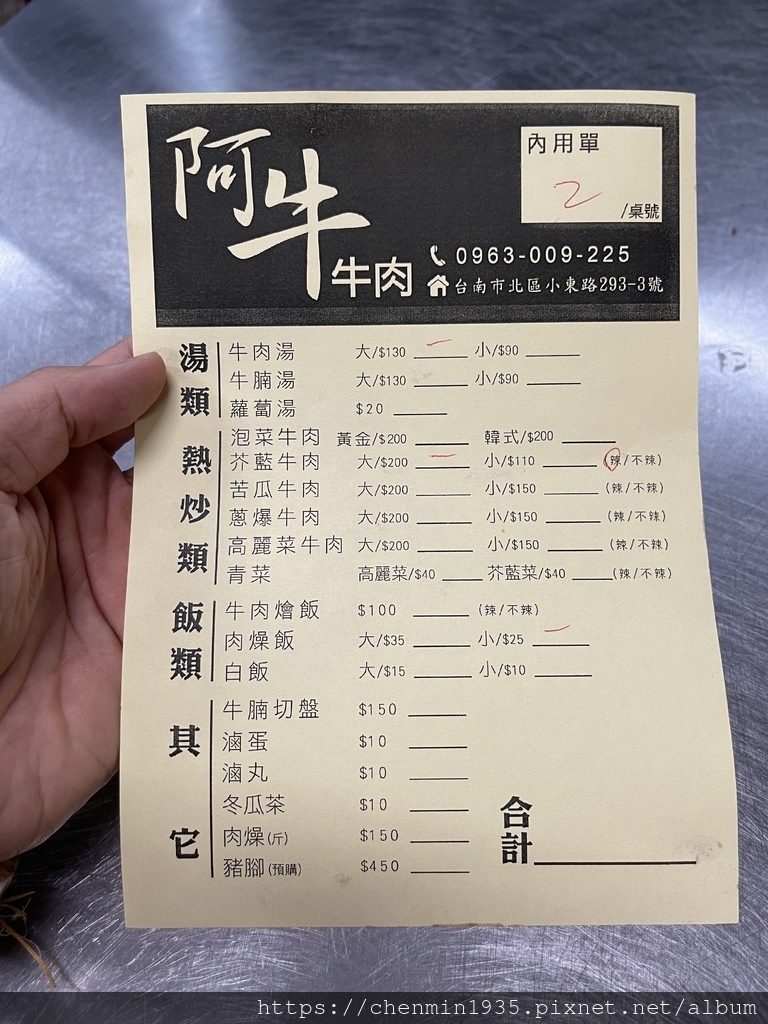 阿牛牛肉
內用單
2 /桌號
0963-009-225
台南市北區小東路293-3號
湯類
牛肉湯 大/$130 一 小/$90
牛腩湯 大/$130 小/$90
蘿蔔湯 $20
熱炒類
泡菜牛肉 黃金/$200 韓式/$200
芥藍牛肉 大/$200 一 小/$110 (辣/不辣)
苦瓜牛肉 大/$200 小/$150 (辣/不辣)
蔥爆牛肉 大/$200 小/$150 (辣/不辣)
高麗菜牛肉 大/$200 小/$150 (辣/不辣)
青菜 高麗菜/$40 芥藍菜/$40 (辣/不辣)
飯類
牛肉燴飯 $100 (辣/不辣)
肉燥飯 大/$35 小/$25 一
白飯 大/$15 小/$10
其它
牛腩切盤 $150
滷蛋 $10
滷丸 $10
冬瓜茶 $10
肉燥(斤) $150
豬腳(預購) $450
合計
https://chenmin1935.pixnet.net/album